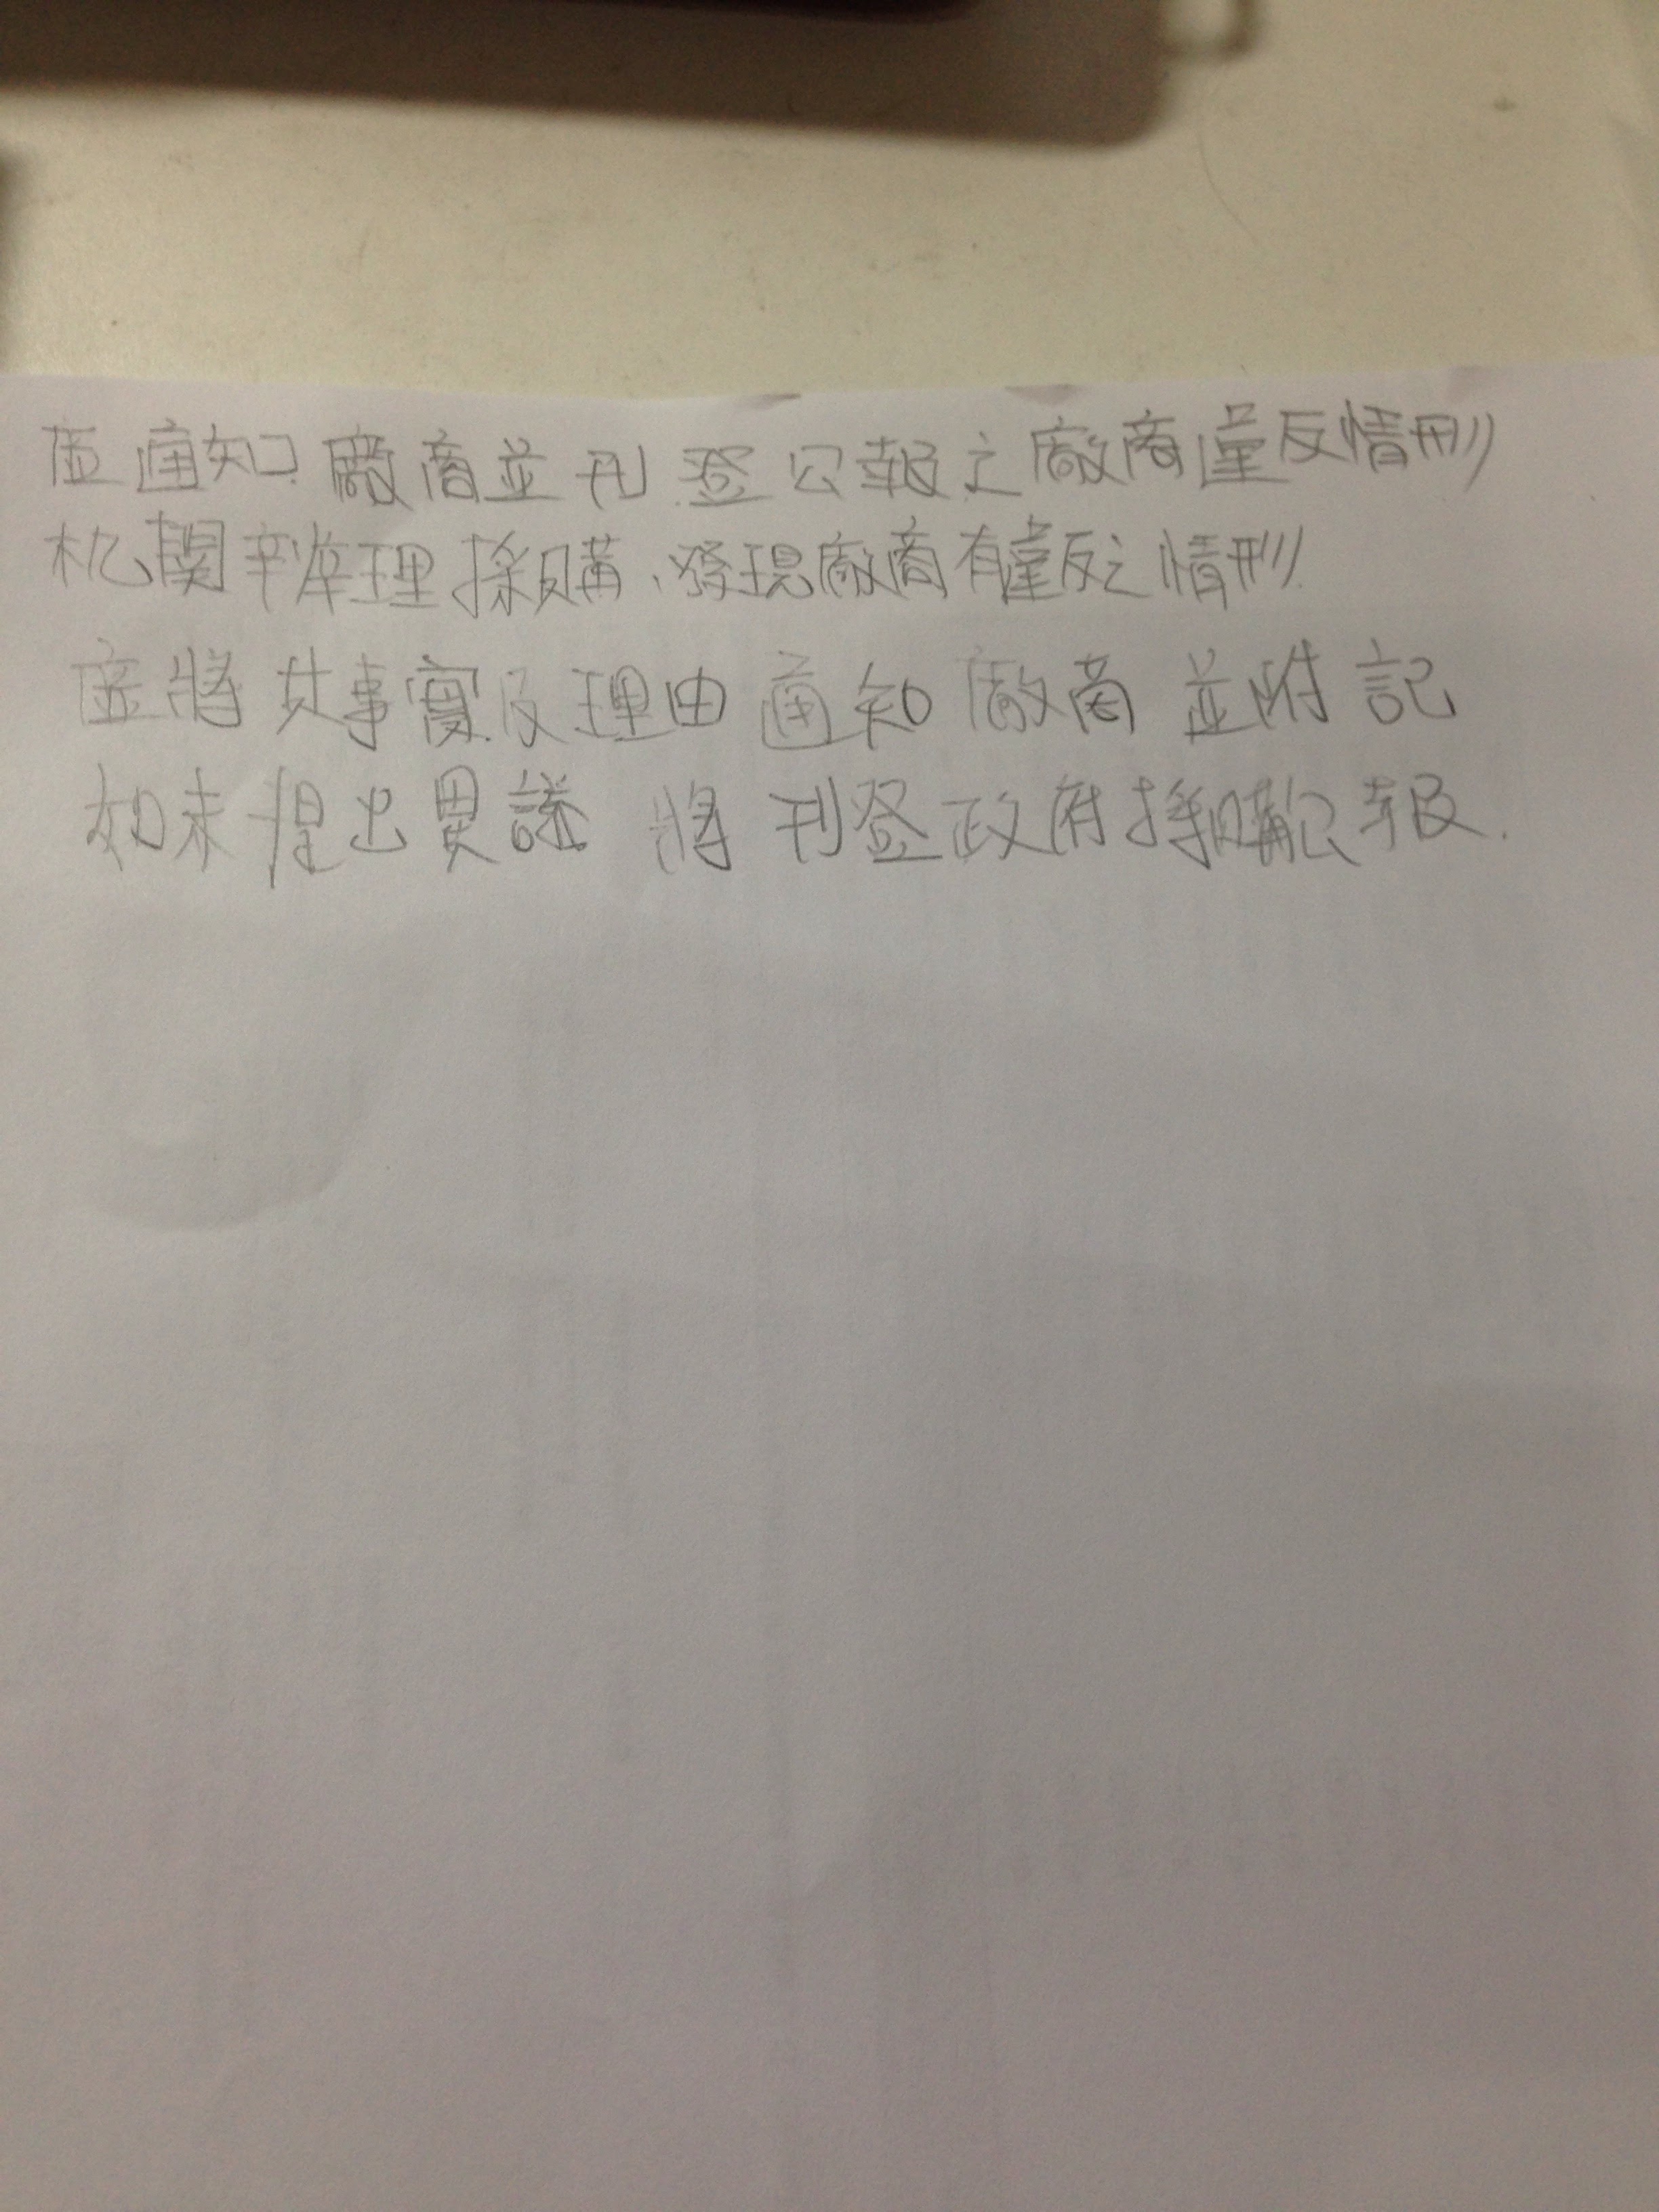 應通知廠商並刊登公報之廠商違反情形
机関辦理採購、發現廠商有違反之情形
應將其事實及理由通知廠商並附記
如未提出異議將刊登政府採購公報.